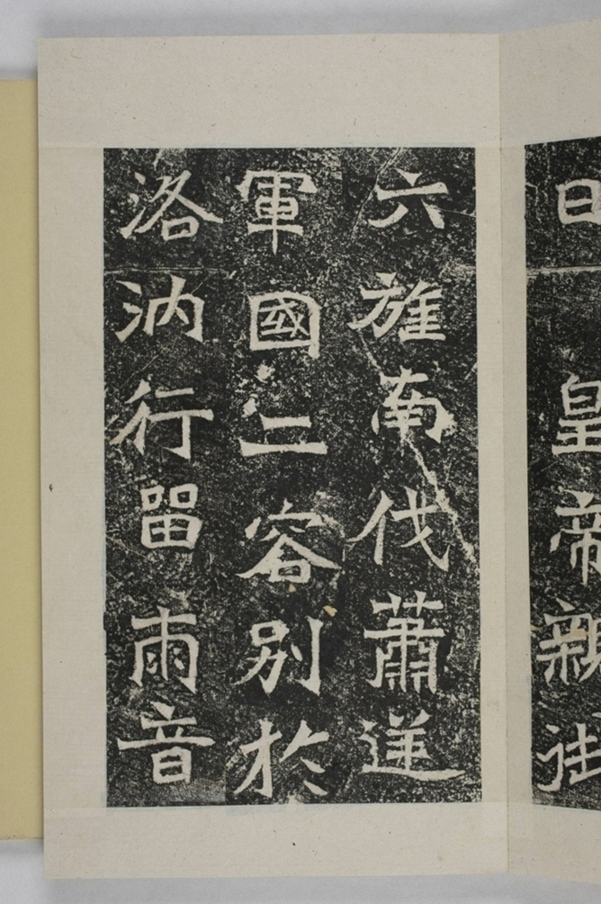 日　皇帝親御
六旌南伐蕭逆
軍國二容別於
洛汭行留兩音